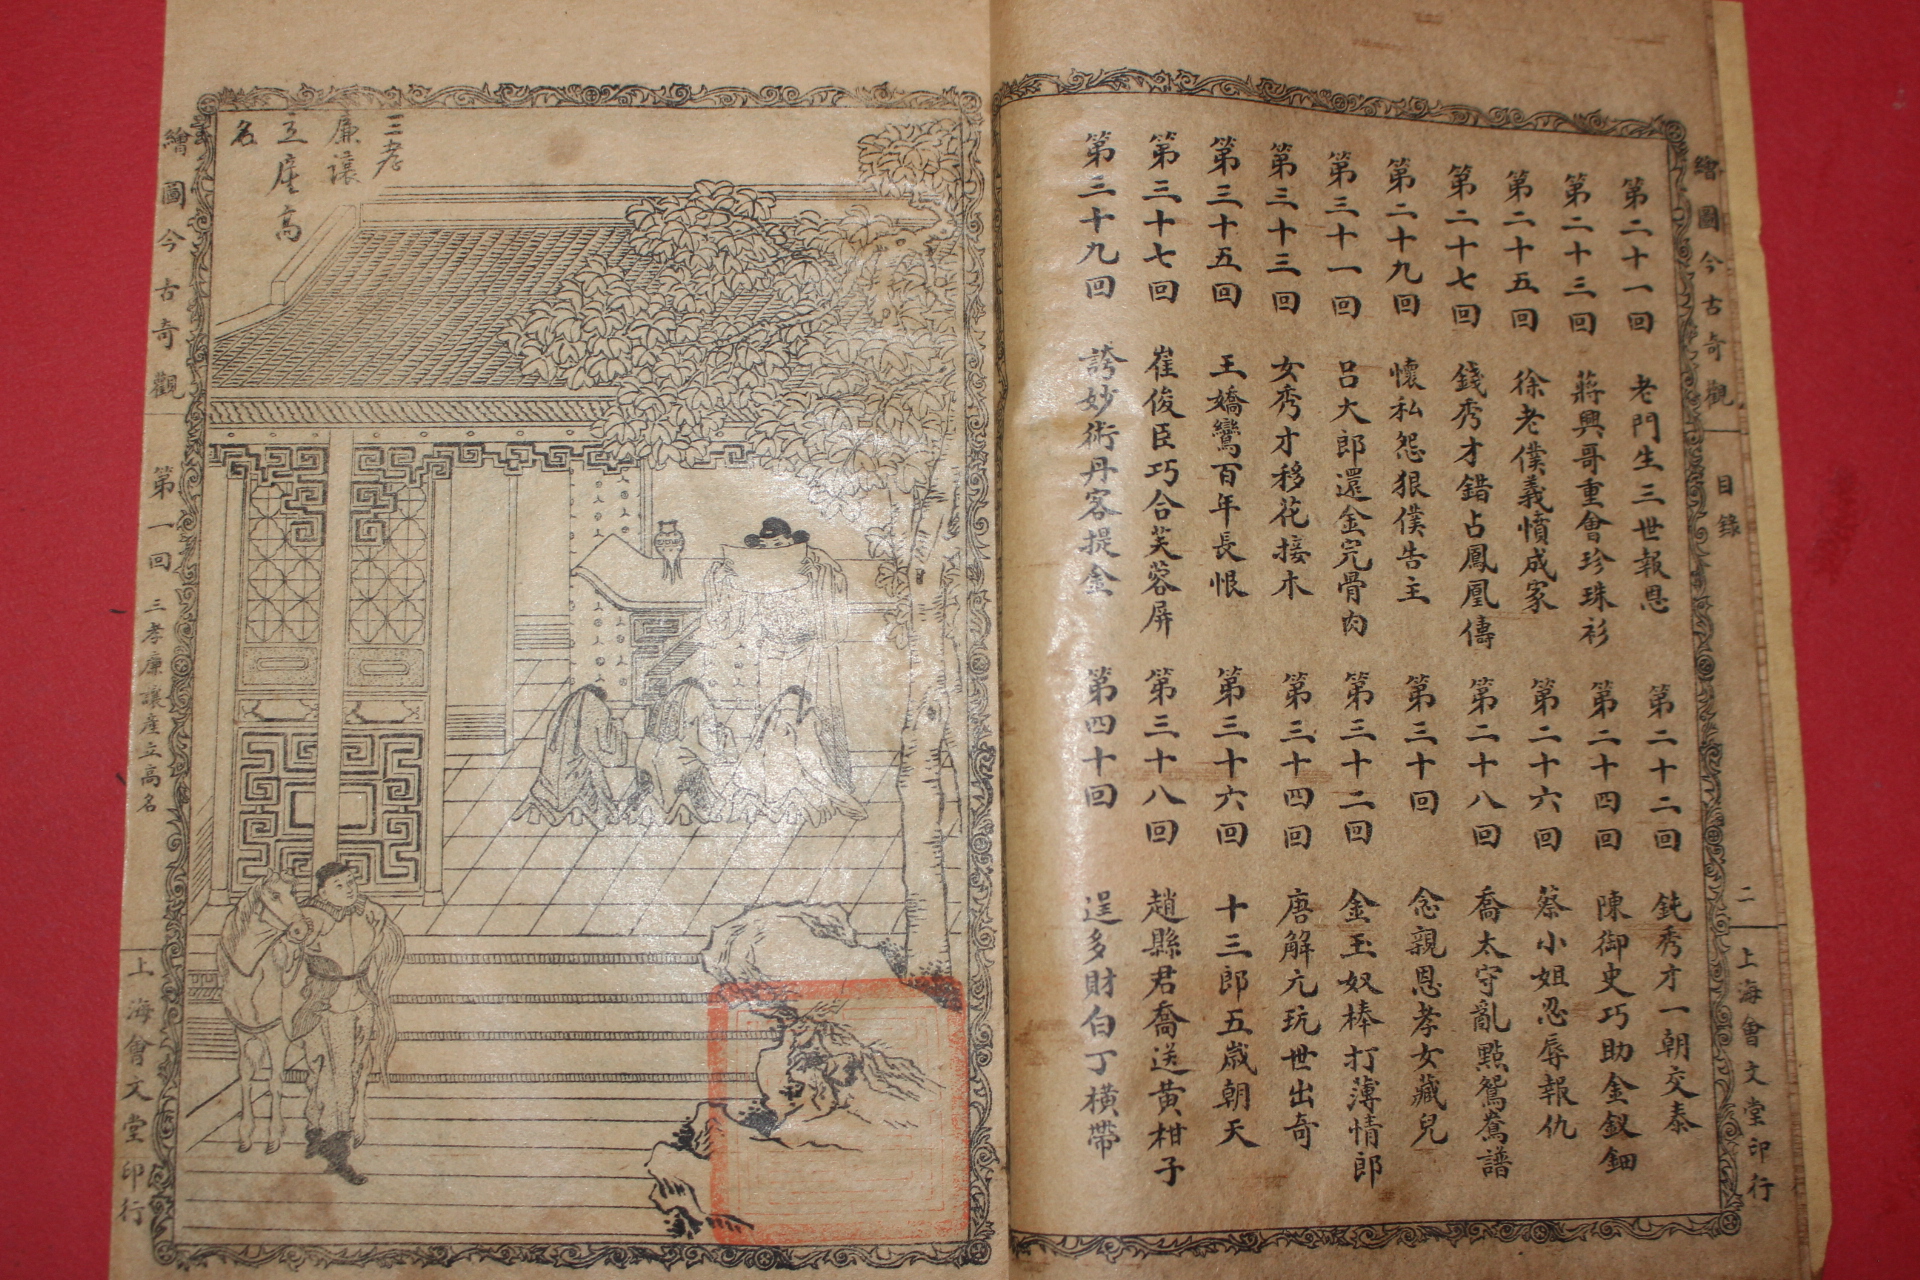 繪圖今古奇觀 目錄 二 上海會文堂印行
第二十一回 老門生三世報恩 第二十二回 鈍秀才一朝交泰
第二十三回 蔣興哥重會珍珠衫 第二十四回 陳御史巧助金釵鈿
第二十五回 徐老僕義憤成家 第二十六回 蔡小姐忍辱報仇
第二十七回 錢秀才錯占鳳凰儔 第二十八回 喬太守亂點鴛鴦譜
第二十九回 懷私怨狠僕告主 第三十回 念親恩孝女藏兒
第三十一回 呂大郎還金完骨肉 第三十二回 金玉奴棒打薄情郎
第三十三回 女秀才移花接木 第三十四回 唐解元玩世出奇
第三十五回 王嬌鸞百年長恨 第三十六回 十三郎五歲朝天
第三十七回 崔俊臣巧合芙蓉屏 第三十八回 趙縣君喬送黃柑子
第三十九回 誇妙術丹客提金 第四十回 逞多財白丁橫帶
三孝
廉讓
立產高
名
繪圖今古奇觀 第一回 三孝廉讓產立高名 上海會文堂印行